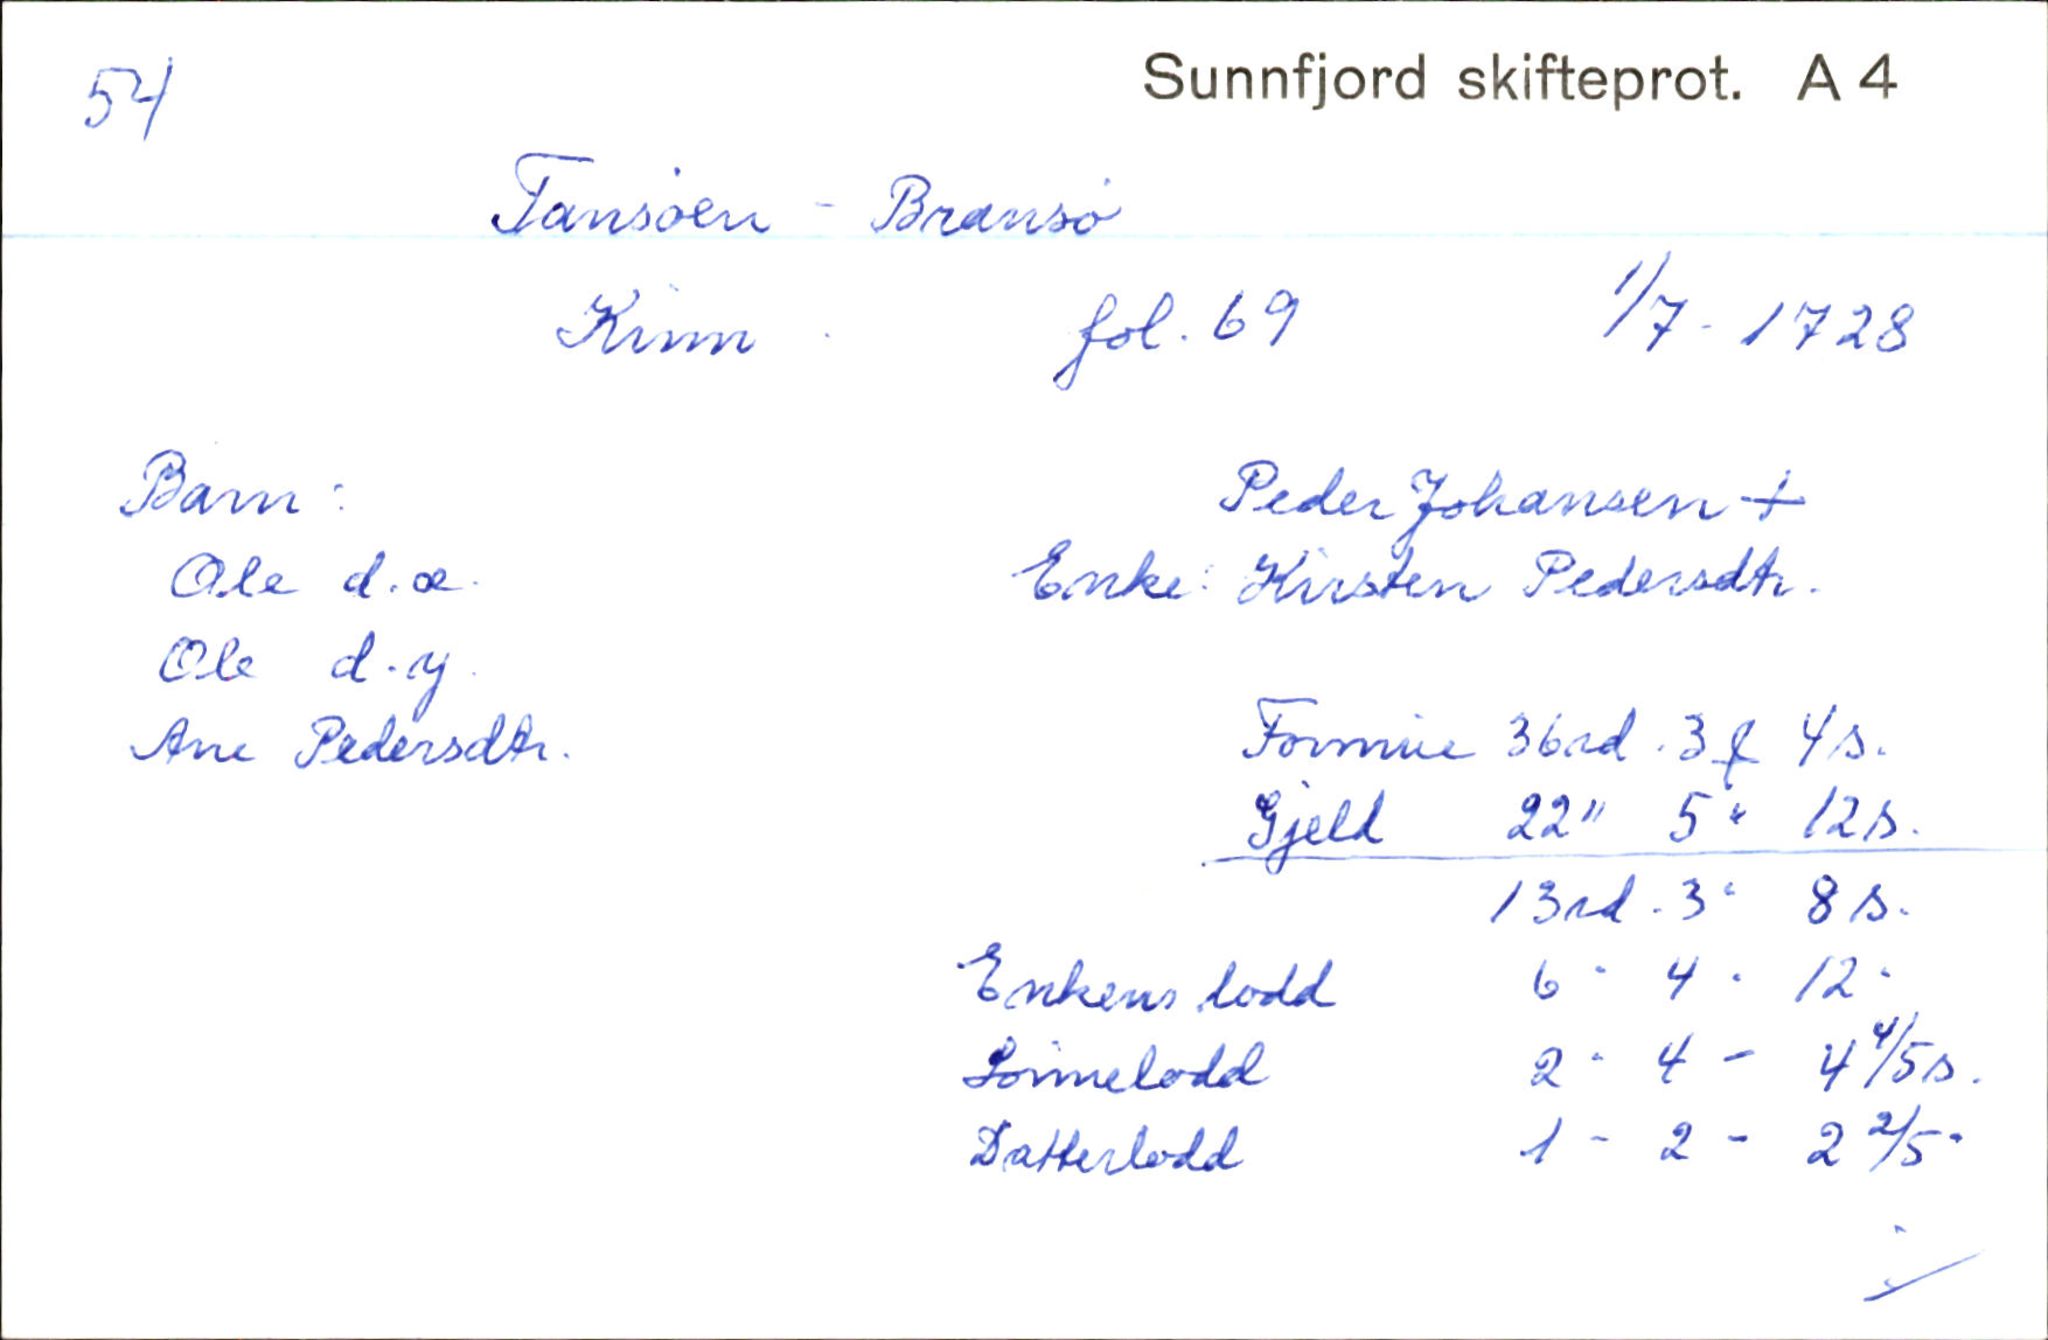 Sunnfjord skifteprot. A 4
54
Tansøen - Bransø
Kinn fol. 69 1/7 - 1728
Barn: Peder Johansen +
Ole d.æ. Enke: Kirsten Pedersdtr.
Ole d.y.
Ane Pedersdtr. Formue 36rd. 3 f 4 s.
Gjeld 22" 5 " 12 s.
13rd. 3 " 8 s.
Enkens lodd 6 - 4 - 12 -
Sønnelodd 2 - 4 - 4 4/5 s.
Datterlodd 1 - 2 - 2 2/5 -